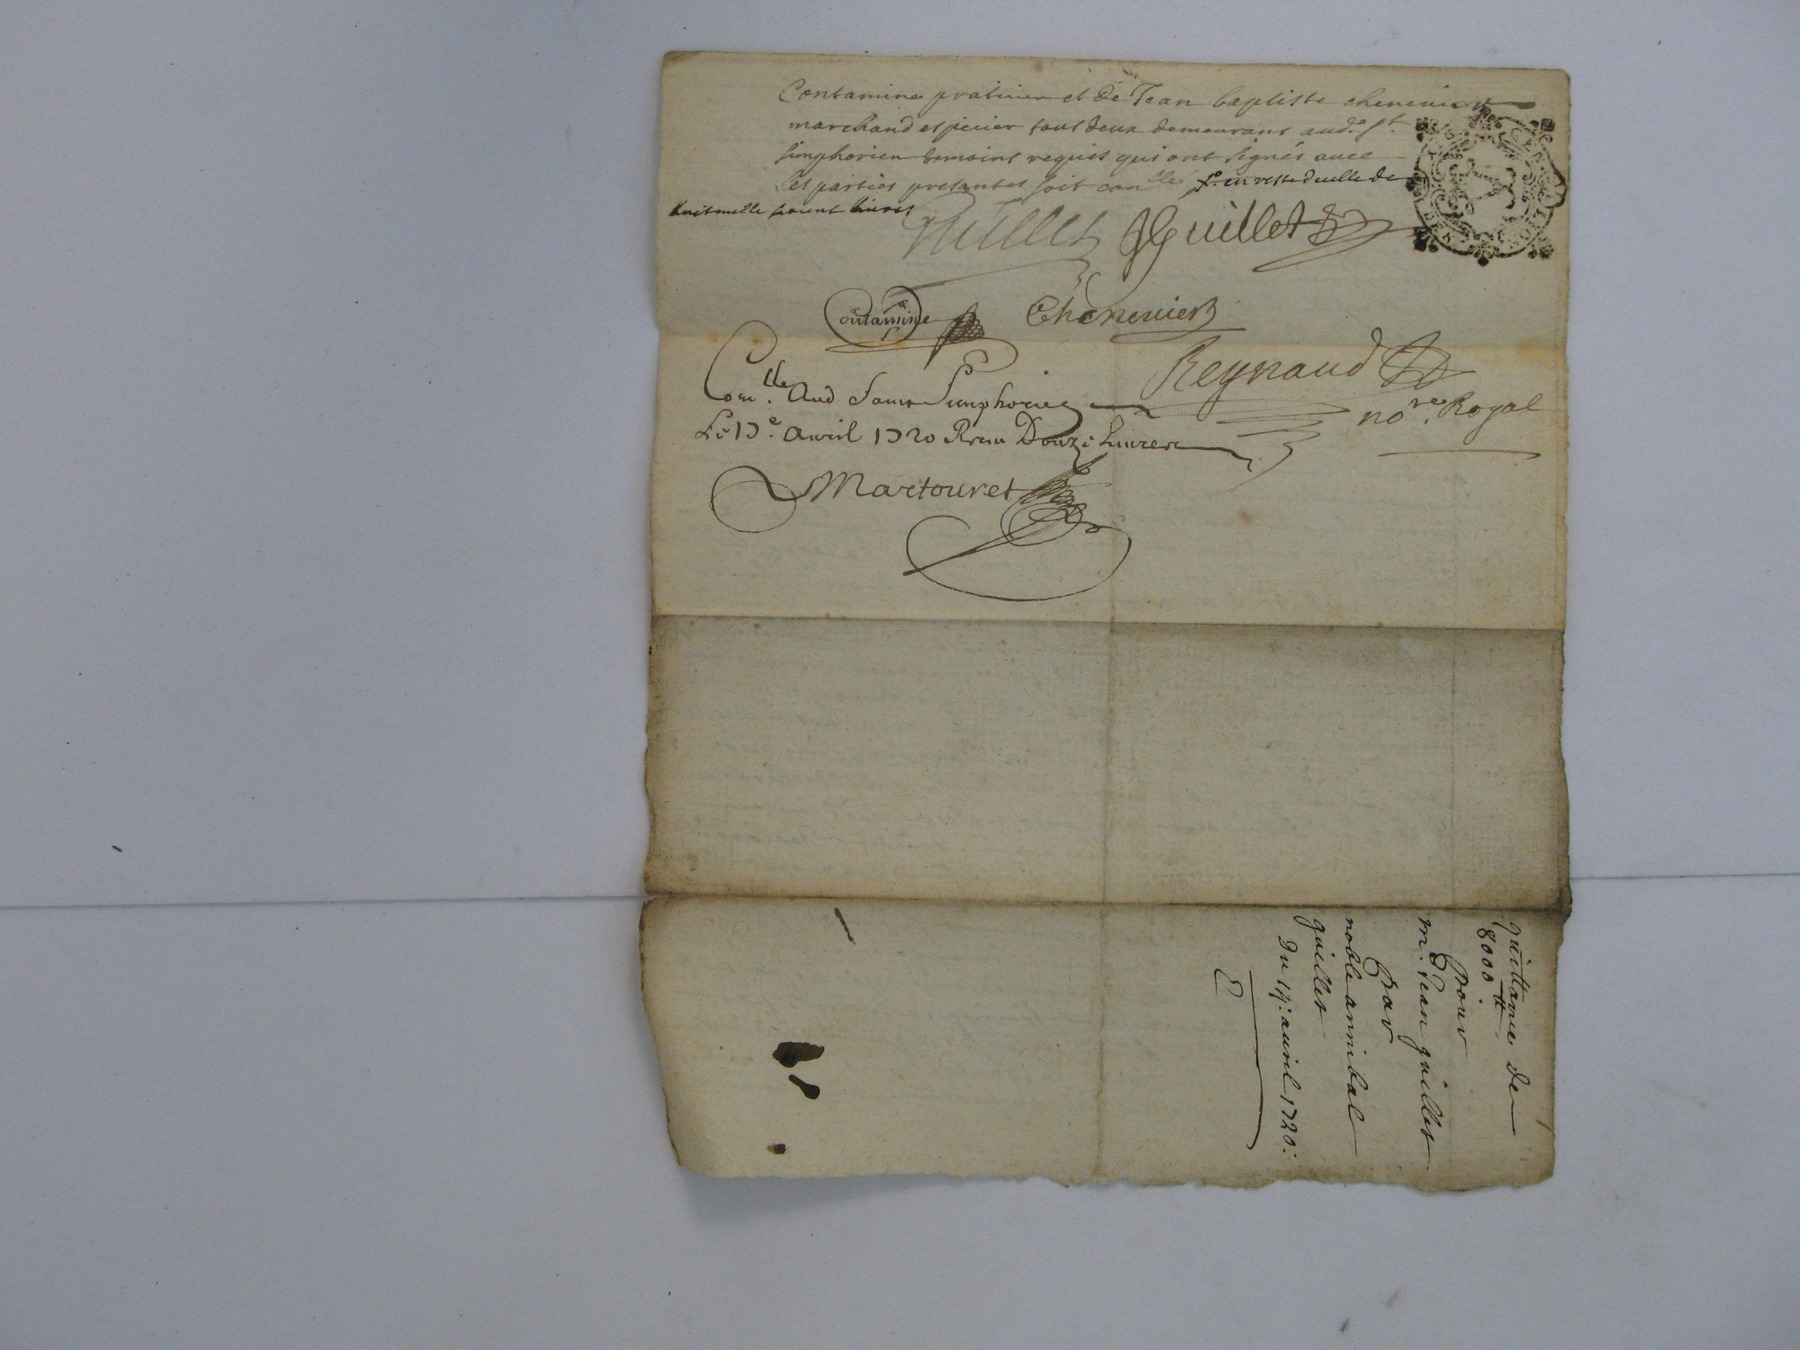 Contamine praticien et de Jean baptiste chenevier
marchand espicier tous deux demeurans aud.t St
simphorien temoins requis qui ont signés avec
les parties presantes soit con.lle en reste de celle de
huit mille livres
Guillet JGuillet
Contamine Chenevier
Reynaud
no.re Royal
Con.lle Aud Saint Simphorien
Le 17e. avril 1720 Receu Douze Livres
Martouret
quittance de
8000.tt
Pour
m.r Jean guillet
Par
noble annibal
guillet
Du 17: auril 1720: